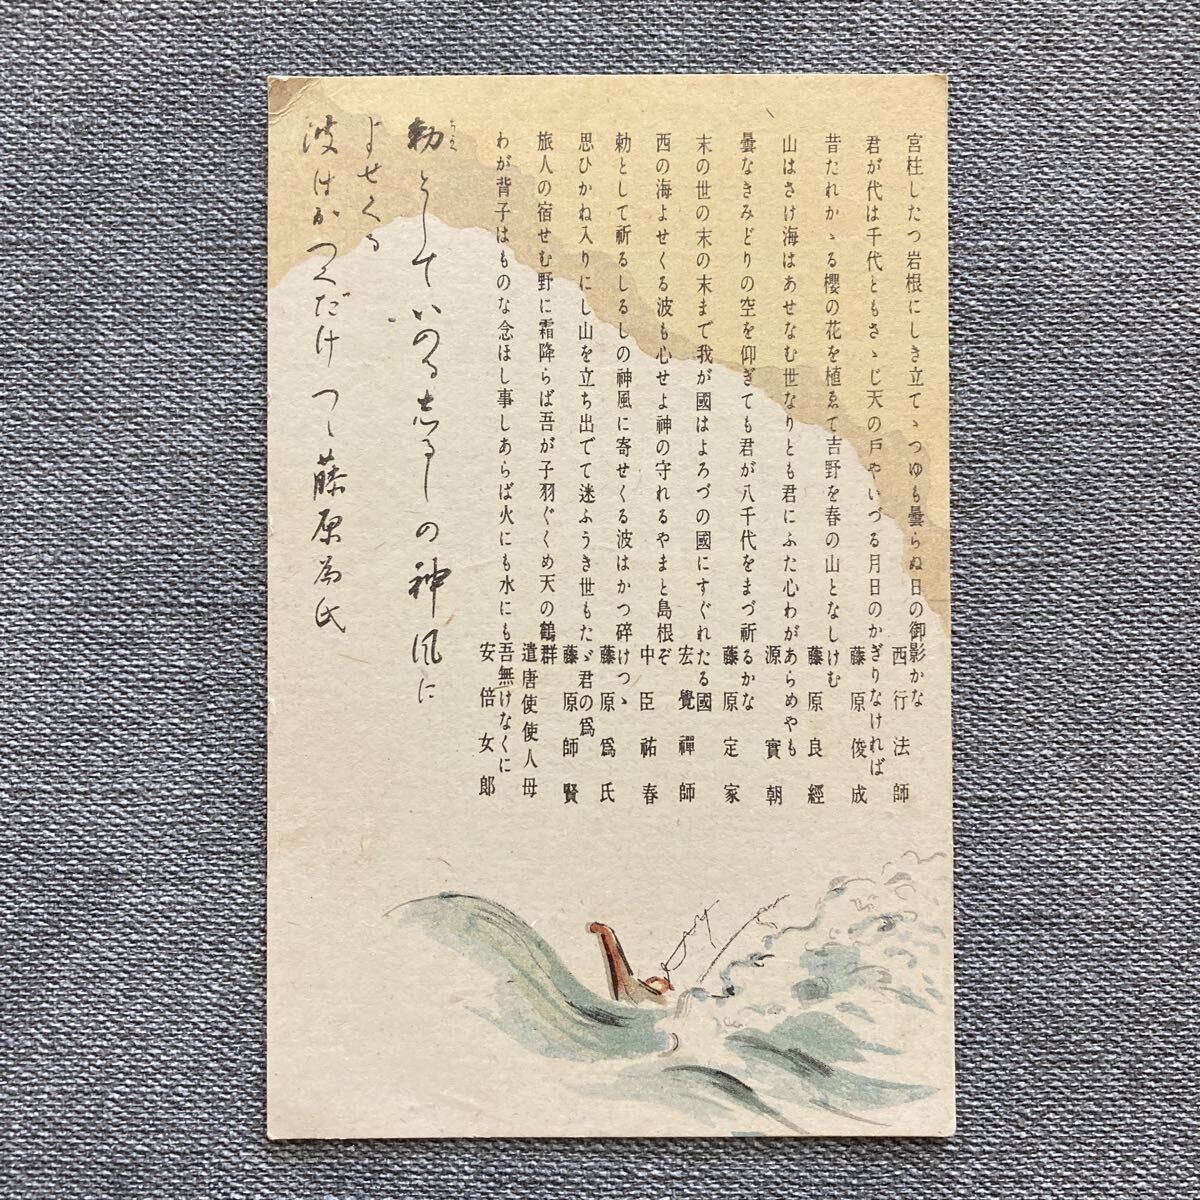 宮柱したつ岩根にしき立てゝつゆも曇らぬ日の御影かな
西行法師
君が代は千代ともさゝじ天の戸やいづる月日のかぎりなければ
藤原俊成
昔たれかゝる櫻の花を植ゑて吉野を春の山となしけむ
藤原良經
山はさけ海はあせなむ世なりとも君にふた心わがあらめやも
源實朝
曇なきみどりの空を仰ぎても君が八千代をまづ祈るかな
藤原定家
末の世の末の末まで我が國はよろづの國にすぐれたる國
宏覺禪師
西の海よせくる波も心せよ神の守れるやまと島根ぞ
中臣祐春
勅として祈るしるしの神風に寄せくる波はかつ碎けつゝ
藤原爲氏
思ひかね入りにし山を立ち出でて迷ふうき世もたゞ君の爲
藤原師賢
旅人の宿せむ野に霜降らば吾が子羽ぐくめ天の鶴群
遣唐使使人母
わが背子はものな念ほし事しあらば火にも水にも吾無けなくに
安倍女郎
勅としていのる志るしの神風に
よせくる
波はかつくだけつゝ藤原為氏